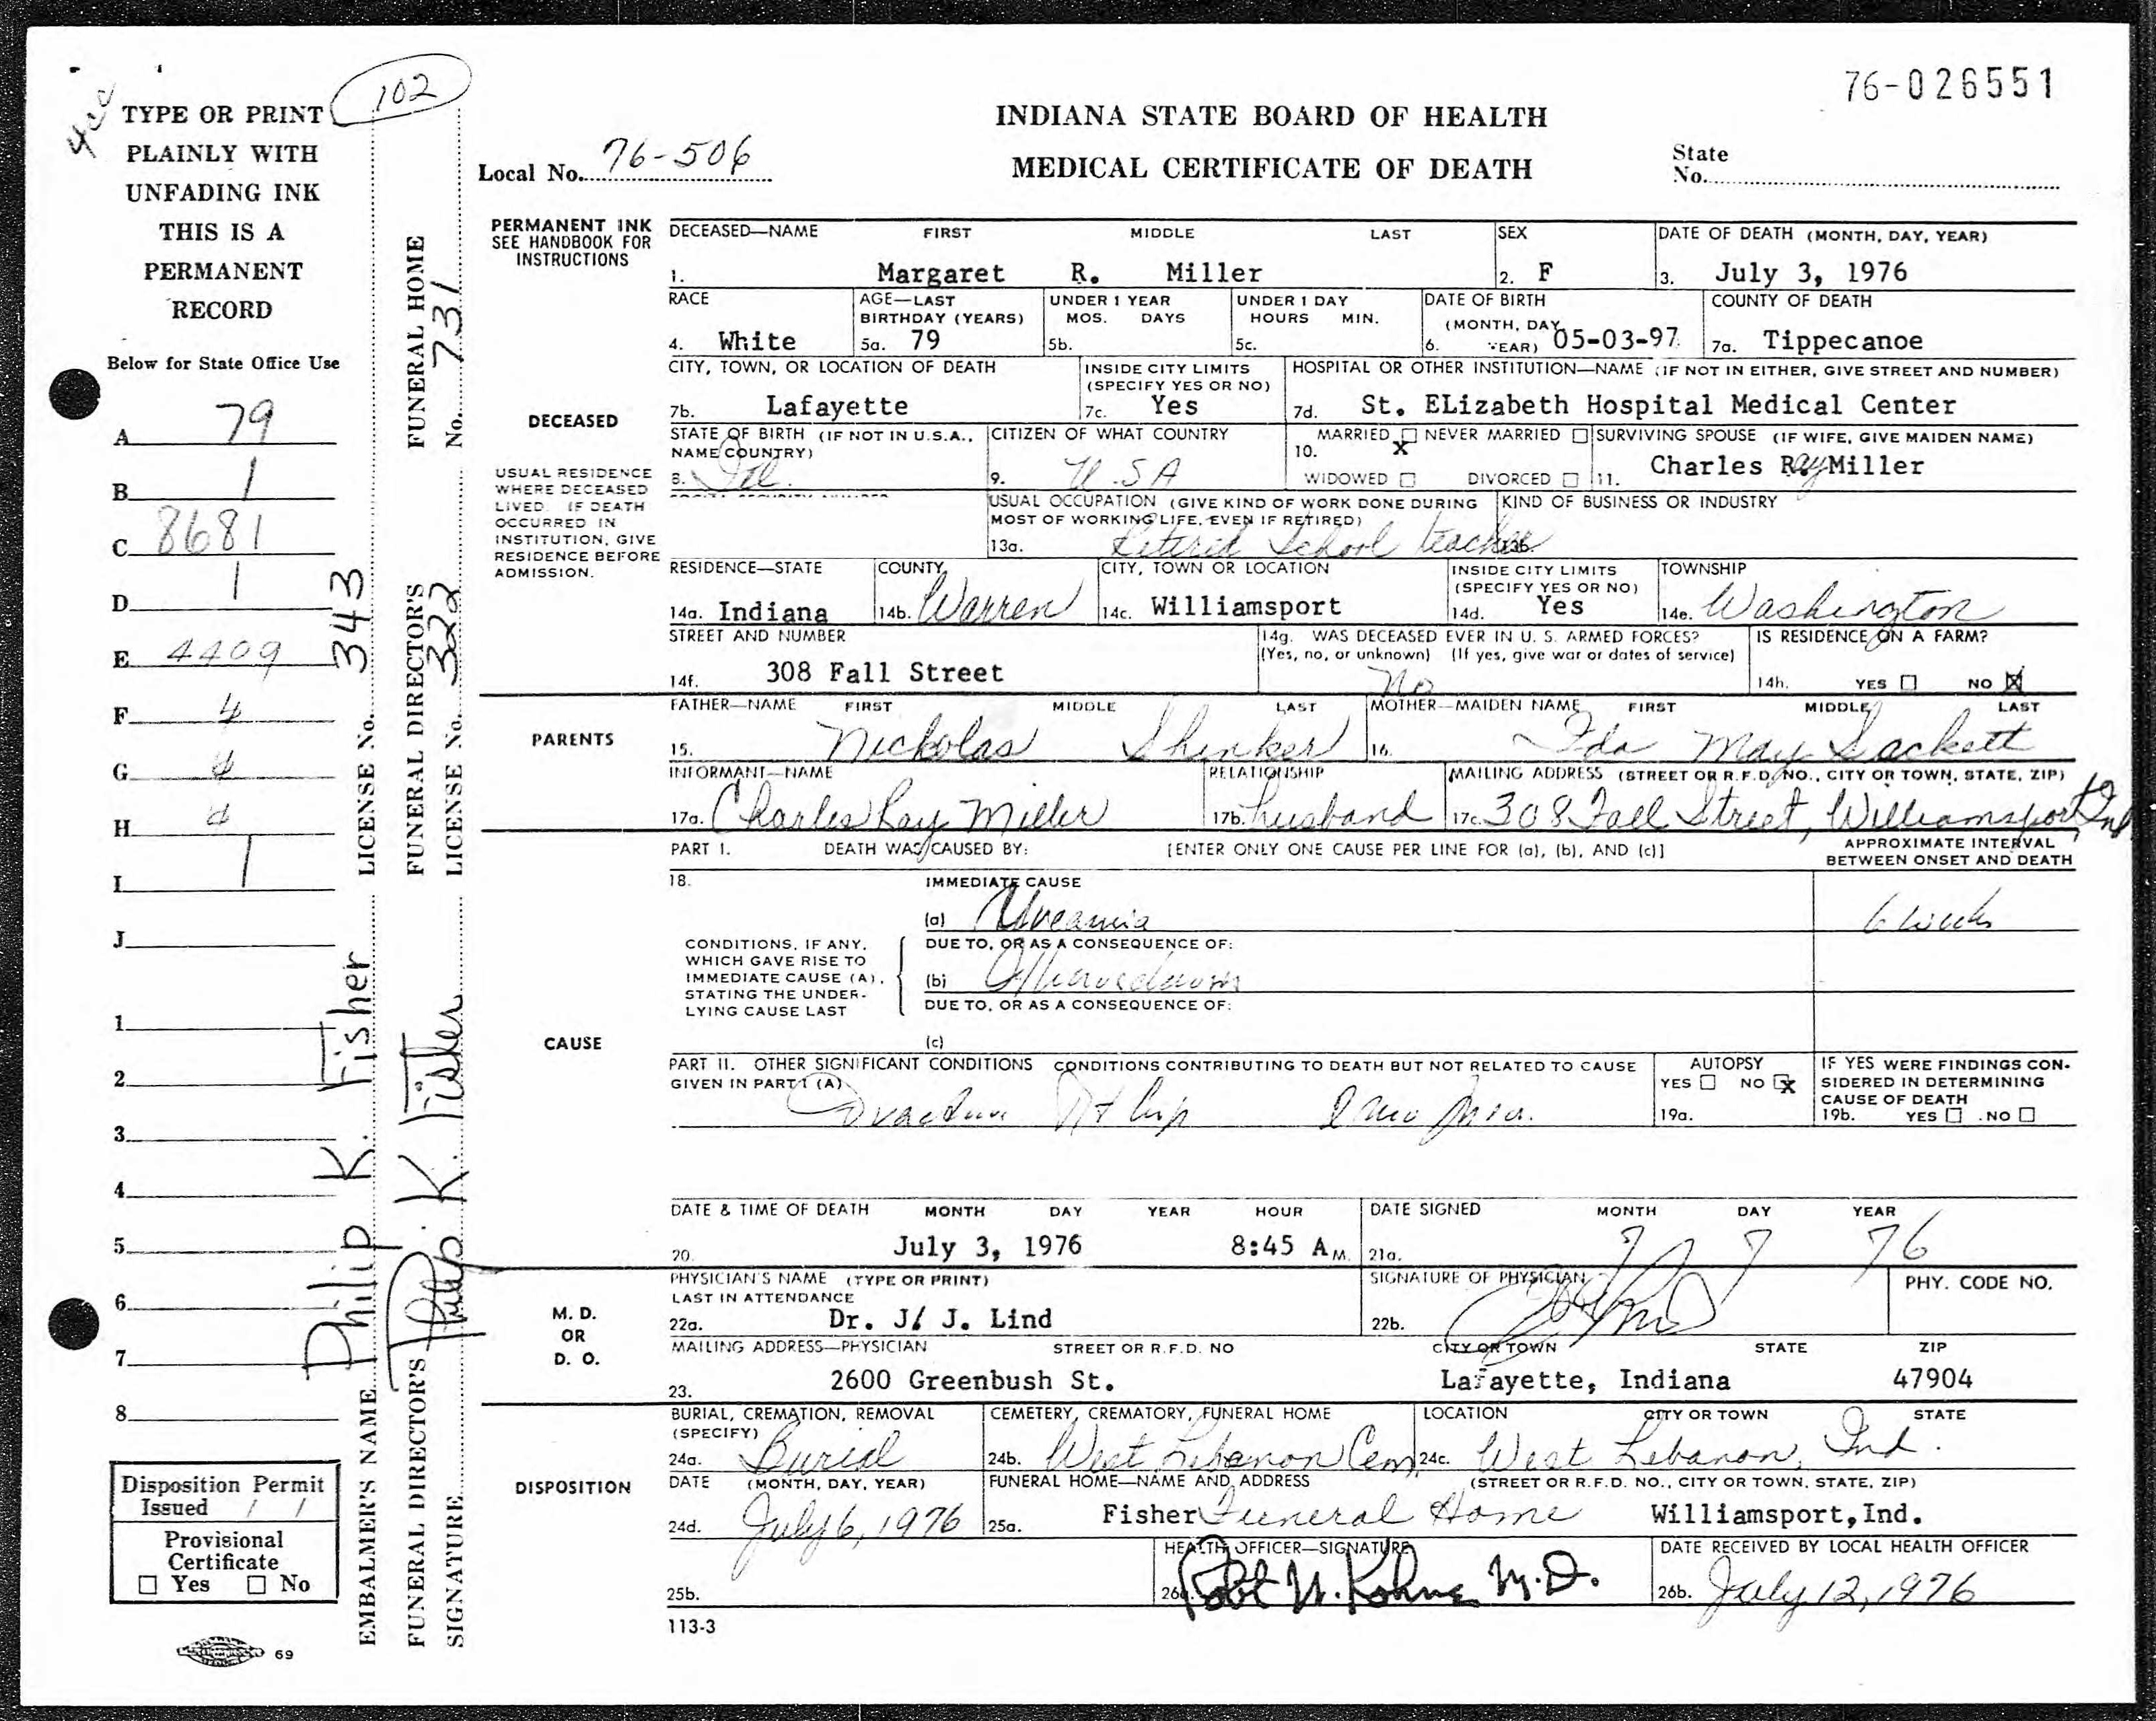 4cc
TYPE OR PRINT
PLAINLY WITH
UNFADING INK
THIS IS A
PERMANENT
RECORD
102
Below for State Office Use
A 79
B 1
C 8681
D 1
E 4409
F 4
G
H
I 1
J
1
2
3
4
5
6
7
8
Disposition Permit
Issued / /
Provisional
Certificate
☐ Yes ☐ No
69
EMBALMER'S NAME Philip K. Fisher LICENSE No. 343
FUNERAL DIRECTOR'S SIGNATURE Philip K. Fisher FUNERAL DIRECTOR'S LICENSE No. 322
FUNERAL HOME No. 731
76-026551
INDIANA STATE BOARD OF HEALTH
Local No. 76-506
MEDICAL CERTIFICATE OF DEATH
State
No.
PERMANENT INK
SEE HANDBOOK FOR
INSTRUCTIONS
DECEASED
USUAL RESIDENCE
WHERE DECEASED
LIVED. IF DEATH
OCCURRED IN
INSTITUTION, GIVE
RESIDENCE BEFORE
ADMISSION.
DECEASED—NAME FIRST MIDDLE LAST SEX DATE OF DEATH (MONTH, DAY, YEAR)
1. Margaret R. Miller 2. F 3. July 3, 1976
RACE AGE—LAST BIRTHDAY (YEARS) UNDER 1 YEAR MOS. DAYS UNDER 1 DAY HOURS MIN. DATE OF BIRTH (MONTH, DAY, YEAR) COUNTY OF DEATH
4. White 5a. 79 5b. 5c. 6. 05-03-97 7a. Tippecanoe
CITY, TOWN, OR LOCATION OF DEATH INSIDE CITY LIMITS (SPECIFY YES OR NO) HOSPITAL OR OTHER INSTITUTION—NAME (IF NOT IN EITHER, GIVE STREET AND NUMBER)
7b. Lafayette 7c. Yes 7d. St. ELizabeth Hospital Medical Center
STATE OF BIRTH (IF NOT IN U.S.A., NAME COUNTRY) CITIZEN OF WHAT COUNTRY MARRIED ☐ NEVER MARRIED ☐ SURVIVING SPOUSE (IF WIFE, GIVE MAIDEN NAME)
8. 9. U.S.A 10. X WIDOWED ☐ DIVORCED ☐ 11. Charles Ray Miller
USUAL OCCUPATION (GIVE KIND OF WORK DONE DURING MOST OF WORKING LIFE, EVEN IF RETIRED) KIND OF BUSINESS OR INDUSTRY
13a. Retired School teacher 13b.
RESIDENCE—STATE COUNTY CITY, TOWN OR LOCATION INSIDE CITY LIMITS (SPECIFY YES OR NO) TOWNSHIP
14a. Indiana 14b. Warren 14c. Williamsport 14d. Yes 14e. Washington
STREET AND NUMBER 14g. WAS DECEASED EVER IN U. S. ARMED FORCES? (Yes, no, or unknown) (If yes, give war or dates of service) IS RESIDENCE ON A FARM?
14f. 308 Fall Street No 14h. YES ☐ NO ☒
PARENTS
FATHER—NAME FIRST MIDDLE LAST MOTHER—MAIDEN NAME FIRST MIDDLE LAST
15. Nickolas Shinker 16. Ida May Sackett
INFORMANT—NAME RELATIONSHIP MAILING ADDRESS (STREET OR R.F.D. NO., CITY OR TOWN, STATE, ZIP)
17a. Charles Ray Miller 17b. husband 17c. 308 Fall Street, Williamsport, Ind
PART I. DEATH WAS CAUSED BY: [ENTER ONLY ONE CAUSE PER LINE FOR (a), (b), AND (c)] APPROXIMATE INTERVAL BETWEEN ONSET AND DEATH
18. IMMEDIATE CAUSE
(a) Uraemia 6 weeks
CONDITIONS, IF ANY,
WHICH GAVE RISE TO
IMMEDIATE CAUSE (A),
STATING THE UNDER-
LYING CAUSE LAST
DUE TO, OR AS A CONSEQUENCE OF:
(b)
DUE TO, OR AS A CONSEQUENCE OF:
(c)
CAUSE
PART II. OTHER SIGNIFICANT CONDITIONS CONDITIONS CONTRIBUTING TO DEATH BUT NOT RELATED TO CAUSE GIVEN IN PART I (A)
Fracture Rt hip
AUTOPSY
YES ☐ NO ☒
19a.
IF YES WERE FINDINGS CON-
SIDERED IN DETERMINING
CAUSE OF DEATH
19b. YES ☐ NO ☐
DATE & TIME OF DEATH MONTH DAY YEAR HOUR DATE SIGNED MONTH DAY YEAR
20. July 3, 1976 8:45 A M. 21a. 7 7 76
M. D.
OR
D. O.
PHYSICIAN'S NAME (TYPE OR PRINT) LAST IN ATTENDANCE SIGNATURE OF PHYSICIAN PHY. CODE NO.
22a. Dr. J/ J. Lind 22b.
MAILING ADDRESS—PHYSICIAN STREET OR R.F.D. NO CITY OR TOWN STATE ZIP
23. 2600 Greenbush St. Lafayette, Indiana 47904
DISPOSITION
BURIAL, CREMATION, REMOVAL (SPECIFY) CEMETERY, CREMATORY, FUNERAL HOME LOCATION CITY OR TOWN STATE
24a. Burial 24b. West Lebanon Cem 24c. West Lebanon, Ind.
DATE (MONTH, DAY, YEAR) FUNERAL HOME—NAME AND ADDRESS (STREET OR R.F.D. NO., CITY OR TOWN, STATE, ZIP)
24d. July 6, 1976 25a. Fisher Funeral Home Williamsport, Ind.
HEALTH OFFICER—SIGNATURE DATE RECEIVED BY LOCAL HEALTH OFFICER
25b. 26a. M.D. 26b. July 12, 1976
113-3